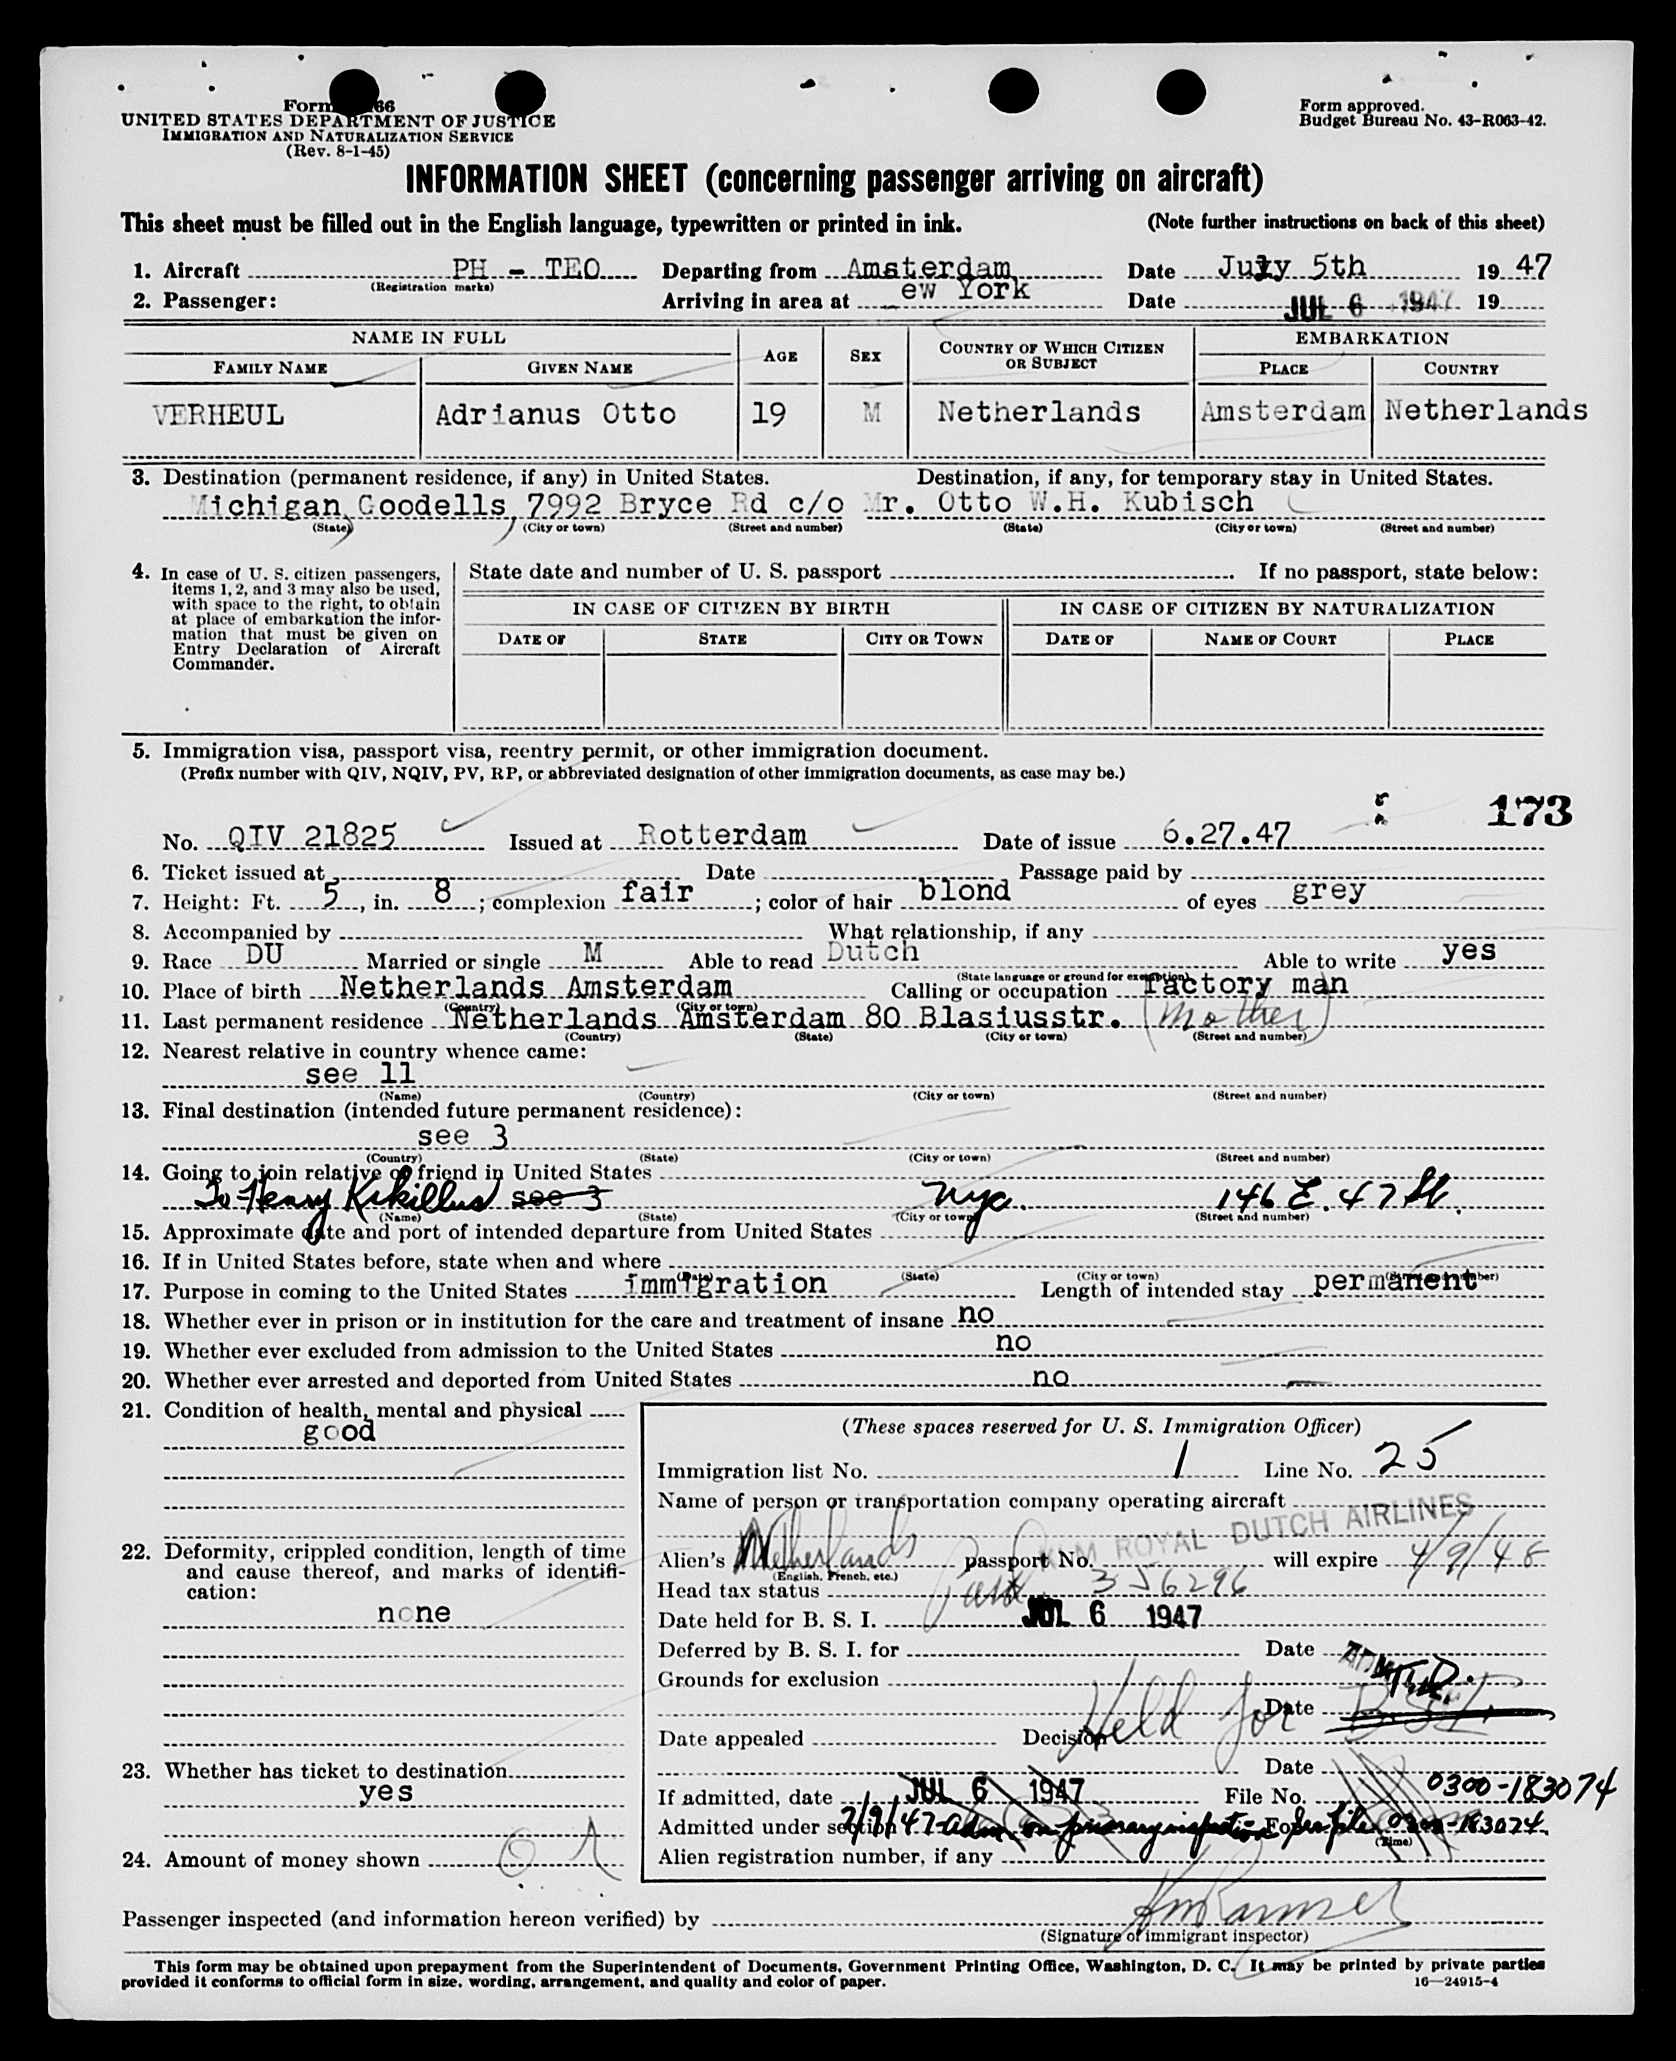 Form 66
UNITED STATES DEPARTMENT OF JUSTICE
IMMIGRATION AND NATURALIZATION SERVICE
(Rev. 8-1-45)
Form approved.
Budget Bureau No. 43-R063-42.
INFORMATION SHEET (concerning passenger arriving on aircraft)
This sheet must be filled out in the English language, typewritten or printed in ink. (Note further instructions on back of this sheet)
1. Aircraft PH - TEO Departing from Amsterdam Date July 5th 19 47
(Registration marks)
2. Passenger: Arriving in area at ew York Date JUL 6 1947 19
NAME IN FULL AGE SEX COUNTRY OF WHICH CITIZEN OR SUBJECT EMBARKATION
FAMILY NAME GIVEN NAME PLACE COUNTRY
VERHEUL Adrianus Otto 19 M Netherlands Amsterdam Netherlands
3. Destination (permanent residence, if any) in United States. Destination, if any, for temporary stay in United States.
Michigan, Goodells, 7992 Bryce Rd c/o Mr. Otto W.H. Kubisch
(State) (City or town) (Street and number) (State) (City or town) (Street and number)
4. In case of U. S. citizen passengers, items 1, 2, and 3 may also be used, with space to the right, to obtain at place of embarkation the information that must be given on Entry Declaration of Aircraft Commander.
State date and number of U. S. passport If no passport, state below:
IN CASE OF CITIZEN BY BIRTH IN CASE OF CITIZEN BY NATURALIZATION
DATE OF STATE CITY OR TOWN DATE OF NAME OF COURT PLACE
5. Immigration visa, passport visa, reentry permit, or other immigration document.
(Prefix number with QIV, NQIV, PV, RP, or abbreviated designation of other immigration documents, as case may be.)
173
No. QIV 21825 Issued at Rotterdam Date of issue 6.27.47
6. Ticket issued at Date Passage paid by
7. Height: Ft. 5, in. 8; complexion fair; color of hair blond of eyes grey
8. Accompanied by What relationship, if any
9. Race DU Married or single M Able to read Dutch Able to write yes
(State language or ground for exemption)
10. Place of birth Netherlands Amsterdam Calling or occupation factory man
(Country) (City or town)
11. Last permanent residence Netherlands Amsterdam 80 Blasiusstr. (Mother)
(Country) (State) (City or town) (Street and number)
12. Nearest relative in country whence came:
see 11
(Name) (Country) (City or town) (Street and number)
13. Final destination (intended future permanent residence):
see 3
(Country) (State) (City or town) (Street and number)
14. Going to join relative or friend in United States
To Henry Kikillus see 3 Nyc. 146 E. 47 St.
(Name) (State) (City or town) (Street and number)
15. Approximate date and port of intended departure from United States
16. If in United States before, state when and where
(Date) (State) (City or town) (Street and number)
17. Purpose in coming to the United States immigration Length of intended stay permanent
18. Whether ever in prison or in institution for the care and treatment of insane no
19. Whether ever excluded from admission to the United States no
20. Whether ever arrested and deported from United States no
21. Condition of health, mental and physical
good
22. Deformity, crippled condition, length of time and cause thereof, and marks of identification:
none
23. Whether has ticket to destination
yes
24. Amount of money shown 0
(These spaces reserved for U. S. Immigration Officer)
Immigration list No. 1 Line No. 25
Name of person or transportation company operating aircraft
KLM ROYAL DUTCH AIRLINES
Alien's Netherlands passport No. will expire 4/9/48
(English, French, etc.)
Head tax status Paid 356296
Date held for B. S. I. JUL 6 1947
Deferred by B. S. I. for Date
Grounds for exclusion
Date
Held for B.S.I.
Date appealed Decision
Date
If admitted, date JUL 6 1947 File No. 0300-183074
Admitted under section 7/9/47 adm on primary inspection For per file 0300-183074.
(Time)
Alien registration number, if any
Passenger inspected (and information hereon verified) by
(Signature of immigrant inspector)
This form may be obtained upon prepayment from the Superintendent of Documents, Government Printing Office, Washington, D. C. It may be printed by private parties
provided it conforms to official form in size, wording, arrangement, and quality and color of paper. 16—24915-4